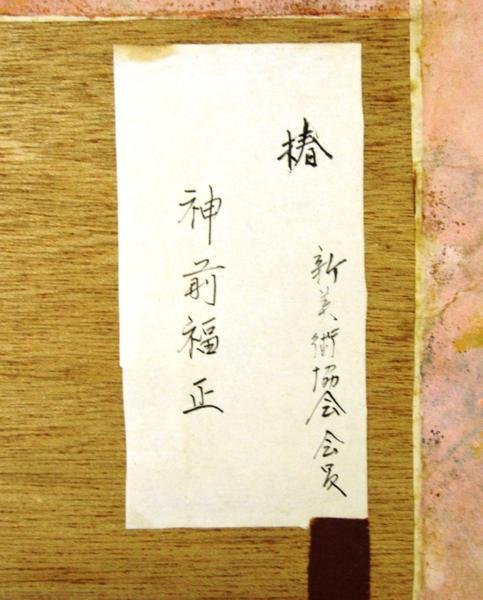 椿
新美術協会会員
神前福正